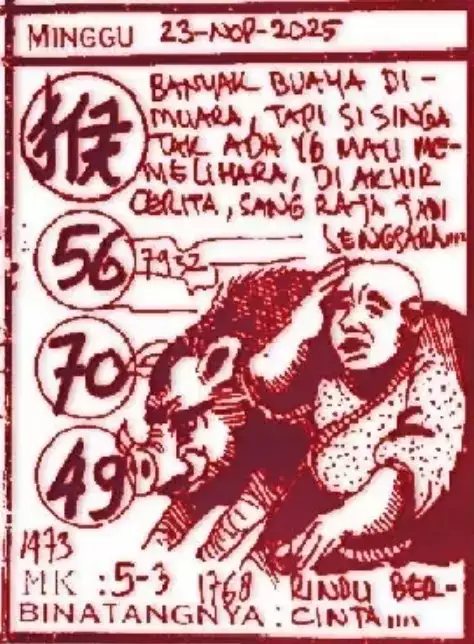 MINGGU 23-NOP-2025
猴
BANYAK BUAYA DI-
MUARA, TAPI SI SINGA
TAK ADA YG MAU ME-
MELIHARA, DI AKHIR
CERITA, SANG RAJA JADI
SENGSARA....
56 7932
70
49
1473
MK : 5-3 1768 RINDU BER-
BINATANGNYA : CINTA....